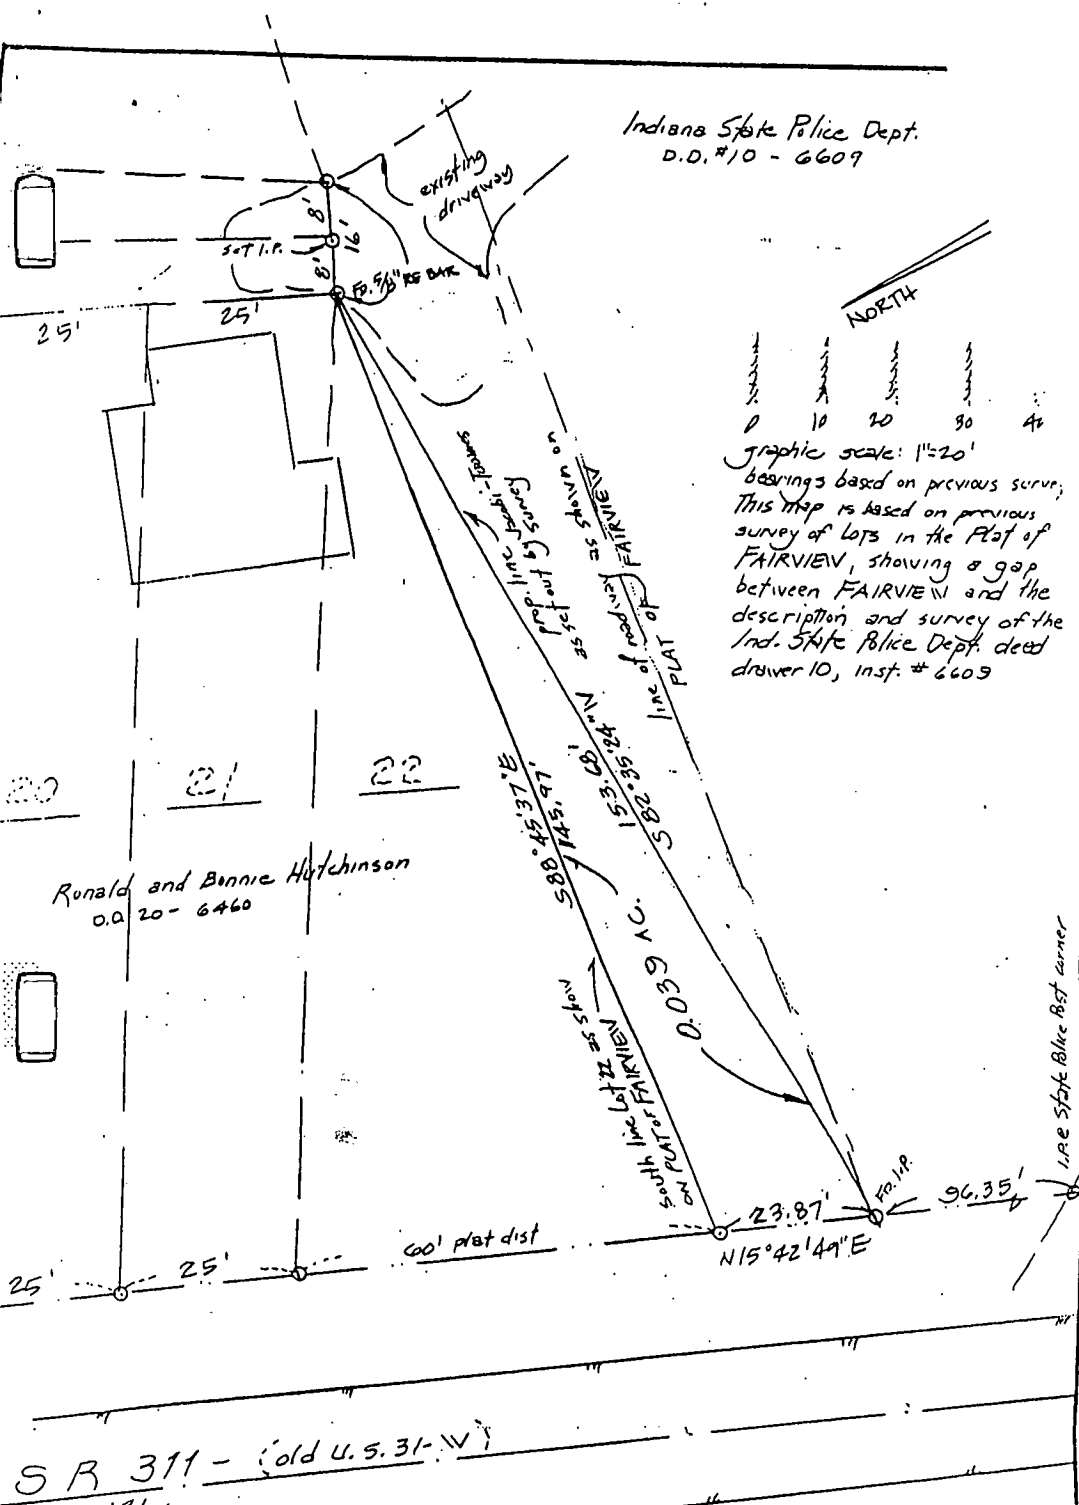 Indiana State Police Dept.
D.D. #10 - 6609
existing
driveway
8'
16'
8'
set I.P.
FD. 5/8" RE BAR
25'
25'
NORTH
0 10 20 30 40
graphic scale: 1"=20'
bearings based on previous survey
This map is based on previous
survey of lots in the Plat of
FAIRVIEW, showing a gap
between FAIRVIEW and the
description and survey of the
Ind. State Police Dept. deed
drawer 10, inst. # 6609
prop. line
as set out by survey
line of roadway as shown on
PLAT OF FAIRVIEW
20
21
22
S88°45'37"E
145.97'
153.68'
S 82°35'24"W
Ronald and Bonnie Hutchinson
D.D. 20 - 6460
0.039 AC.
South line Lot 22 as show
on PLAT of FAIRVIEW
I.P.@ State Police Post corner
FD. I.P.
96.35'
23.87'
N15°42'49"E
60' plat dist
25'
25'
S R 311 - (old U.S. 31-W)